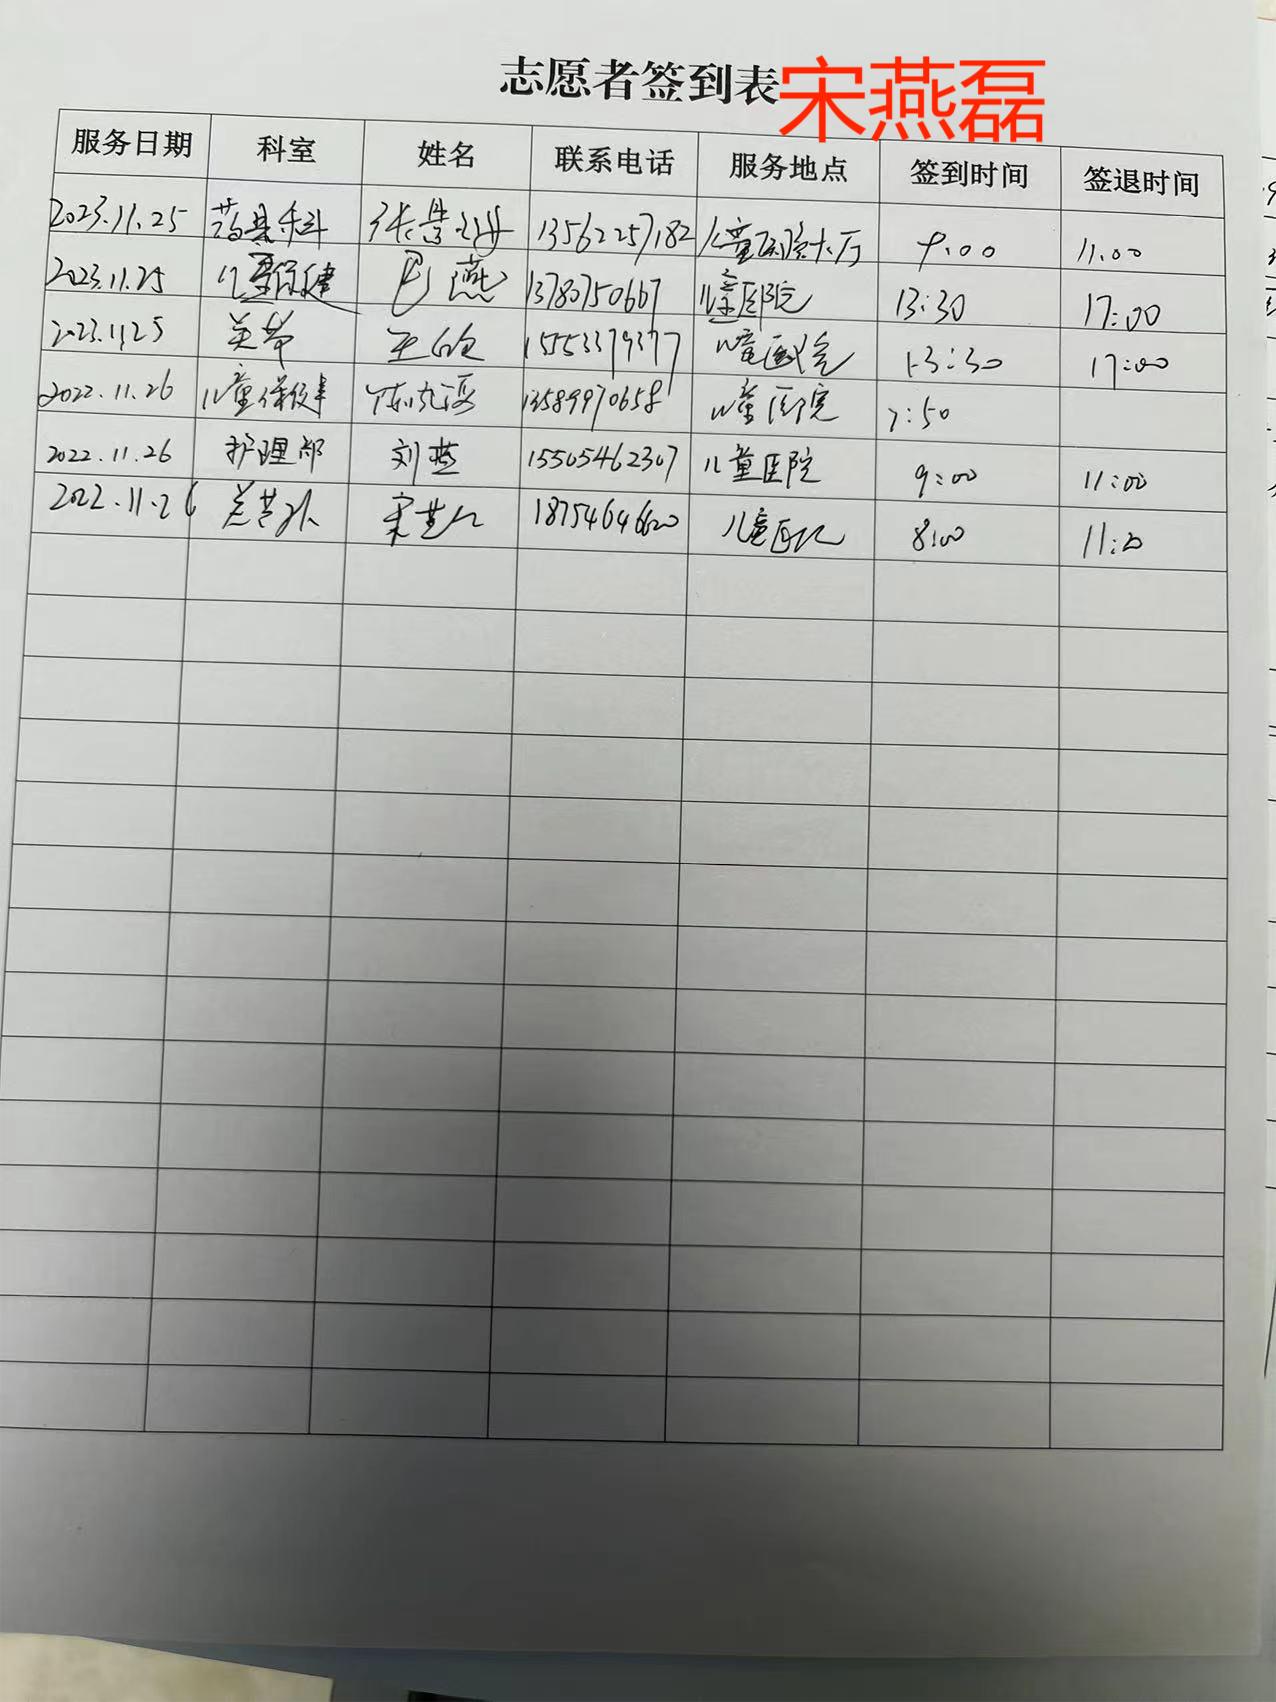 志愿者签到表宋燕磊
服务日期 科室 姓名 联系电话 服务地点 签到时间 签退时间
2023.11.25 药具科 张景 13562257182 儿童医院大厅 9.00 11.00
2023.11.25 儿童保健 燕 13780750667 儿童医院 13:30 17:00
2023.11.25 王 15553379377 儿童医院 13:30 17:00
2022.11.26 儿童保健 陈 13589970658 儿童医院 7:50
2022.11.26 护理部 刘燕 15505462307 儿童医院 9:00 11:00
2022.11.26 宋 18754646620 儿童医院 8:00